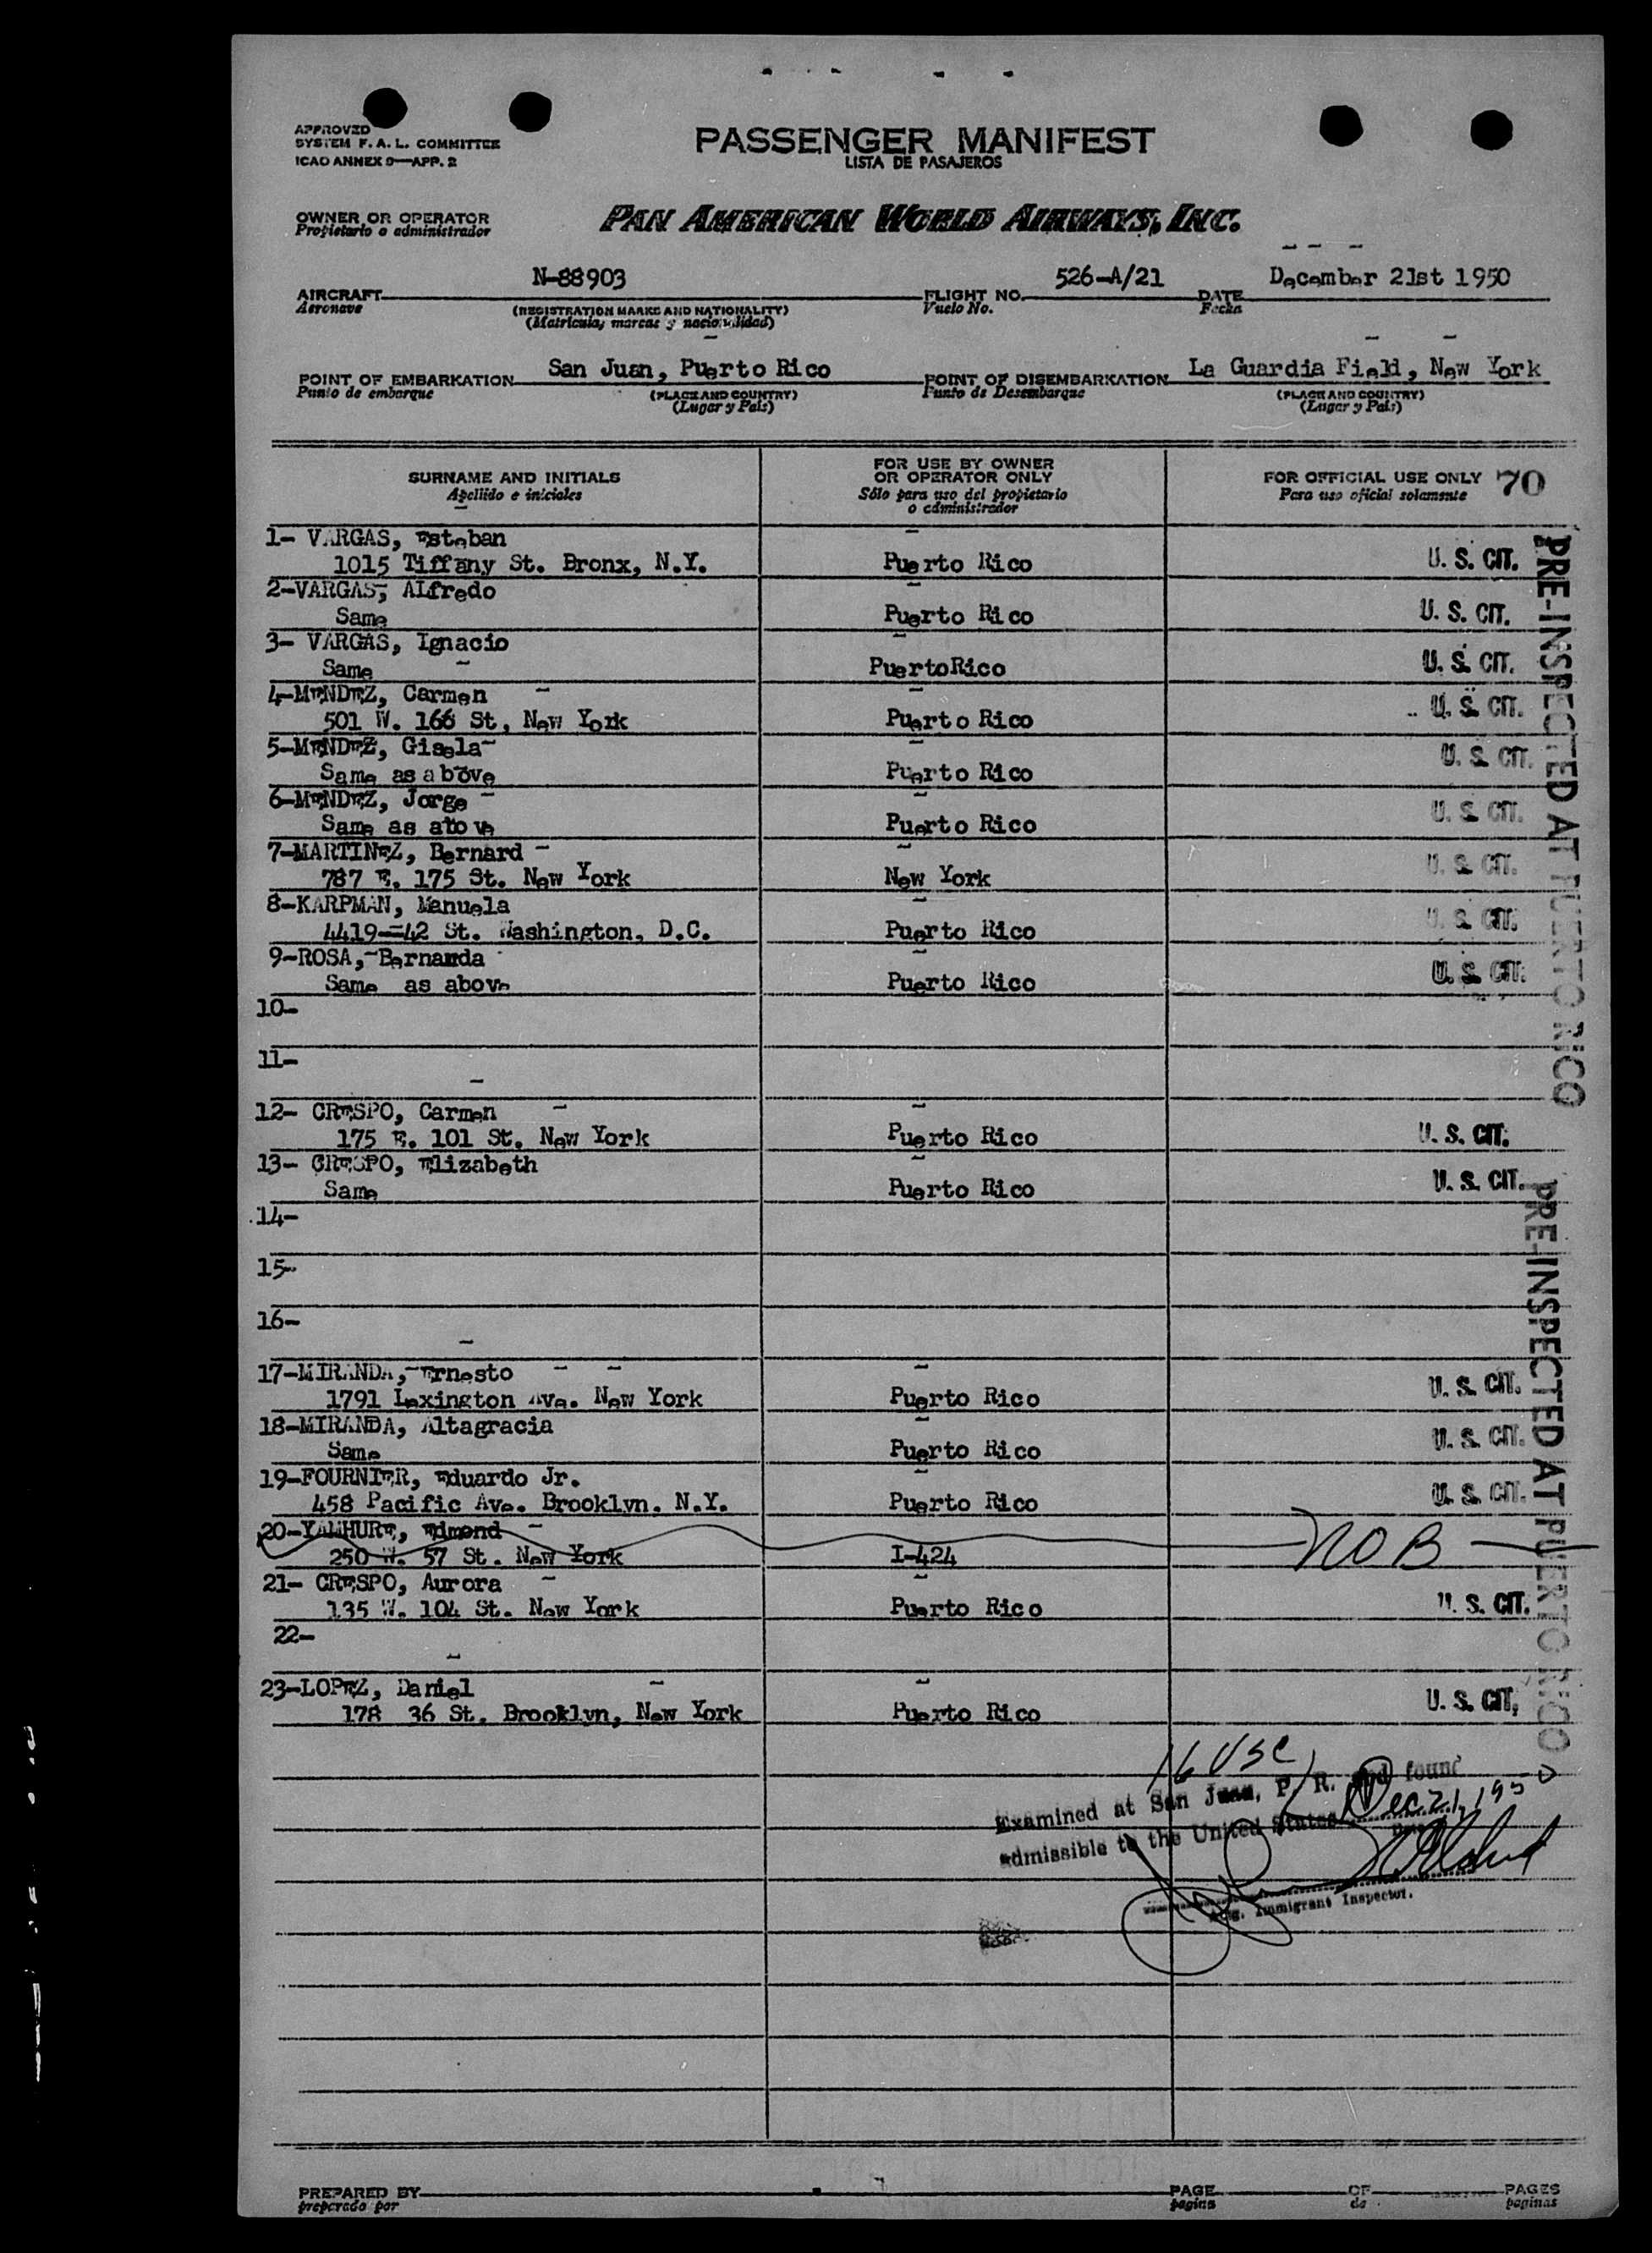 APPROVED
SYSTEM F. A. L. COMMITTEE
ICAO ANNEX 9—APP. 2
PASSENGER MANIFEST
LISTA DE PASAJEROS
OWNER OR OPERATOR
Propietario o administrador
PAN AMERICAN WORLD AIRWAYS, INC.
AIRCRAFT N-88903 FLIGHT NO. 526-A/21 DATE December 21st 1950
Aeronave (REGISTRATION MARKS AND NATIONALITY) Vuelo No. Fecha
(Matricula, marcas y nacionalidad)
POINT OF EMBARKATION San Juan, Puerto Rico POINT OF DISEMBARKATION La Guardia Field, New York
Punto de embarque (PLACE AND COUNTRY) Punto de Desembarque (PLACE AND COUNTRY)
(Lugar y País) (Lugar y País)
SURNAME AND INITIALS FOR USE BY OWNER OR OPERATOR ONLY FOR OFFICIAL USE ONLY 70
Apellido e iniciales Sólo para uso del propietario o administrador Para uso oficial solamente
1- VARGAS, Esteban
1015 Tiffany St. Bronx, N.Y. Puerto Rico U. S. CIT.
2-VARGAS, ALfredo
Same Puerto Rico U. S. CIT.
3- VARGAS, Ignacio
Same PuertoRico U. S. CIT.
4-MENDEZ, Carmen
501 W. 166 St, New York Puerto Rico U. S. CIT.
5-MENDEZ, Gisela
Same as above Puerto Rico U. S. CIT.
6-MENDEZ, Jorge
Same as above Puerto Rico U. S. CIT.
7-MARTINEZ, Bernard
787 E. 175 St. New York New York U. S. CIT.
8-KARPMAN, Manuela
4419-42 St. Washington, D.C. Puerto Rico U. S. CIT.
9-ROSA, Bernanda
Same as above Puerto Rico U. S. CIT.
10-
11-
PRE-INSPECTED AT PUERTO RICO
12- CRESPO, Carmen
175 E. 101 St. New York Puerto Rico U. S. CIT.
13- CRESPO, Elizabeth
Same Puerto Rico U. S. CIT.
14-
15-
16-
17-MIRANDA, Ernesto
1791 Lexington Ave. New York Puerto Rico U. S. CIT.
18-MIRANDA, Altagracia
Same Puerto Rico U. S. CIT.
19-FOURNIER, Eduardo Jr.
458 Pacific Ave. Brooklyn. N.Y. Puerto Rico U. S. CIT.
20-YAMHURE, Edmond
250 W. 57 St. New York I-424 NOB
21- CRESPO, Aurora
135 W. 104 St. New York Puerto Rico U. S. CIT.
22-
23-LOPEZ, Daniel
178 36 St. Brooklyn, New York Puerto Rico U. S. CIT.
PRE-INSPECTED AT PUERTO RICO
16 USC
Examined at San Juan, P. R. and found
admissible to the United States Dec 21, 1950
Date
Immigrant Inspector.
PREPARED BY PAGE OF PAGES
preparado por pagina de paginas